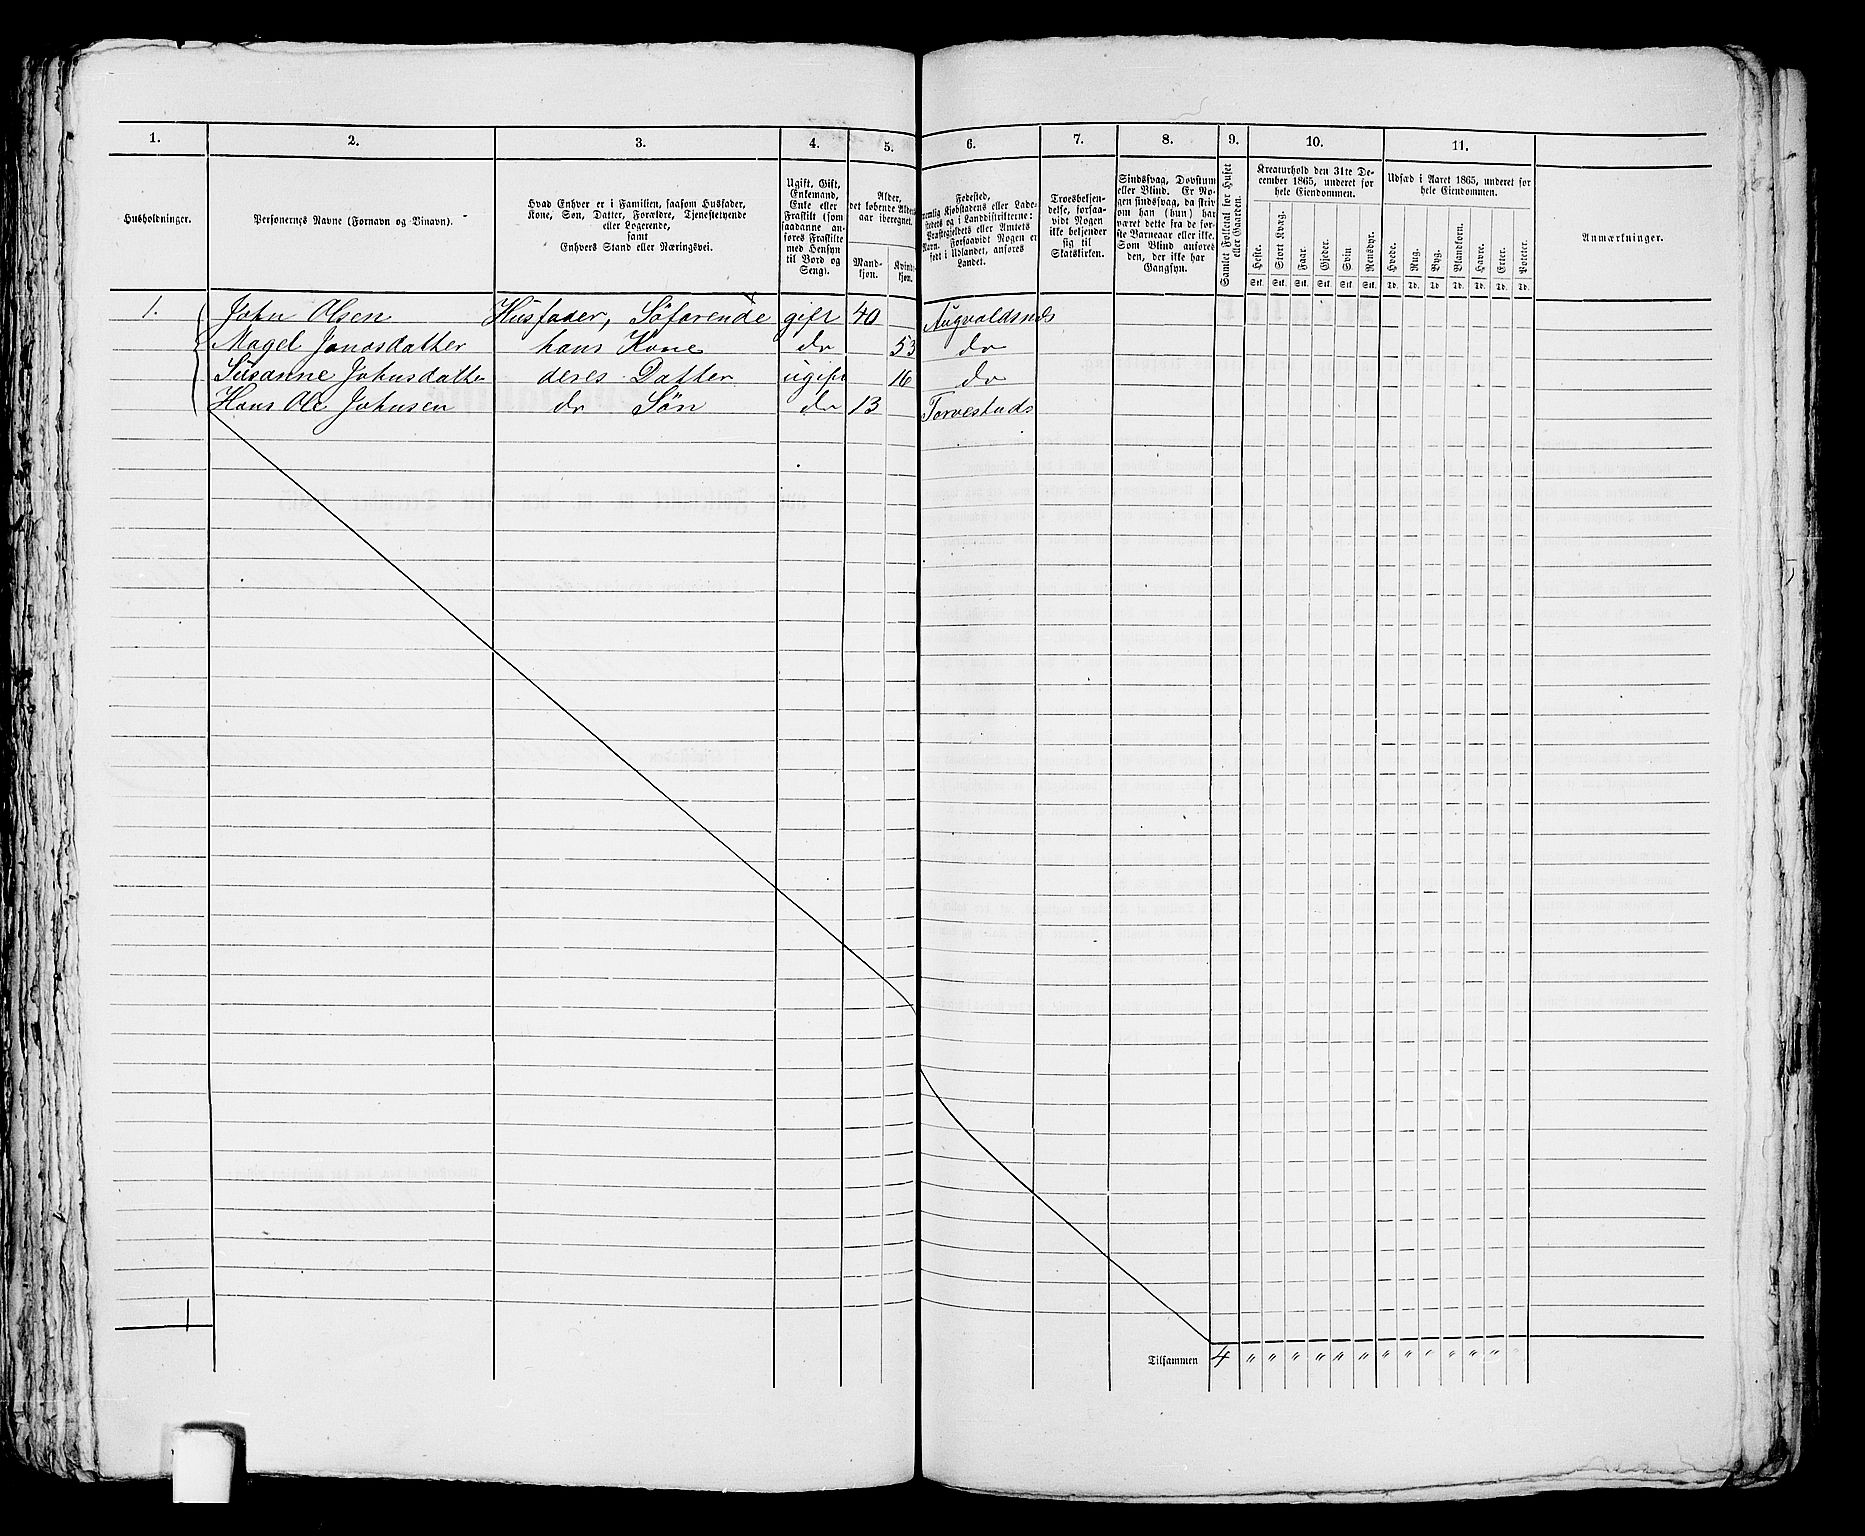 1. 2. 3. 4. 5. 6. 7. 8. 9. 10. 11.
Husholdninger.
Personernes Navne (Fornavn og Binavn).
Hvad Enhver er i Familien, saasom Husfader,
Kone, Søn, Datter, Forældre, Tjenestetyende
eller Logerende,
samt
Enhvers Stand eller Næringsvei.
Ugift, Gift,
Enkemand,
Enke eller
Fraskilt (som
saadanne an-
føres Fraskilte
med Hensyn
til Bord og
Seng).
Alder,
det løbende Alders-
aar iberegnet.
Mand-
kjøn.
Kvind-
kjøn.
Fødested,
nemlig Kjøbstadens eller Lade-
stedets og i Landdistrikterne:
Præstegjeldets eller Amtets
Navn. Forsaavidt Nogen er
født i Udlandet, anføres
Landet.
Troesbekjen-
delse, forsaa-
vidt Nogen
ikke bekjender
sig til
Statskirken.
Sindssvag, Døvstum
eller Blind. Er No-
gen sindssvag, da skriv
om han (hun) har
været dette fra de før-
ste Barneaar eller ikke.
Som Blind anføres
den, der ikke har
Gangsyn.
Samlet Folketal for Huset
eller Gaarden.
Kreaturhold den 31te De-
cember 1865, underet for
hele Eiendommen.
Heste. Stort Kvæg. Faar. Gjeder. Svin Rensdyr.
Stk. Stk. Stk. Stk. Stk. Stk.
Udsæd i Aaret 1865, underet for
hele Eiendommen.
Hvede. Rug. Byg. Blandkorn. Havre. Erter. Poteter.
Td. Td. Td. Td. Td. Td. Td.
Anmærkninger.
1. John Olsen Husfader, Søfarende gift 40 Augvaldsnes
Magel Jonasdatter hans Kone do 53 do
Susanne Johnsdatter deres Datter ugift 16 do
Hans Ole Johnsen do Søn do 13 Torvestads
1
Tilsammen 4 " " " " " " " " " " " "